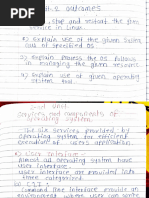 H.S outcomes
stop and restart the given
service in Linux.
b) Explain use of the given System
call of specified OS
c) Explain process the OS follows
in managing the given resources
d) Explain use of given operating
system tool
2nd Unit
Services and components of
operating system.
OS services provided by
operating system for efficient
execution of users application
User interface -
Almost all operating system have
user interface
user interface are provided into
three categories
CLI
Command line interface provide an
environment where user can type